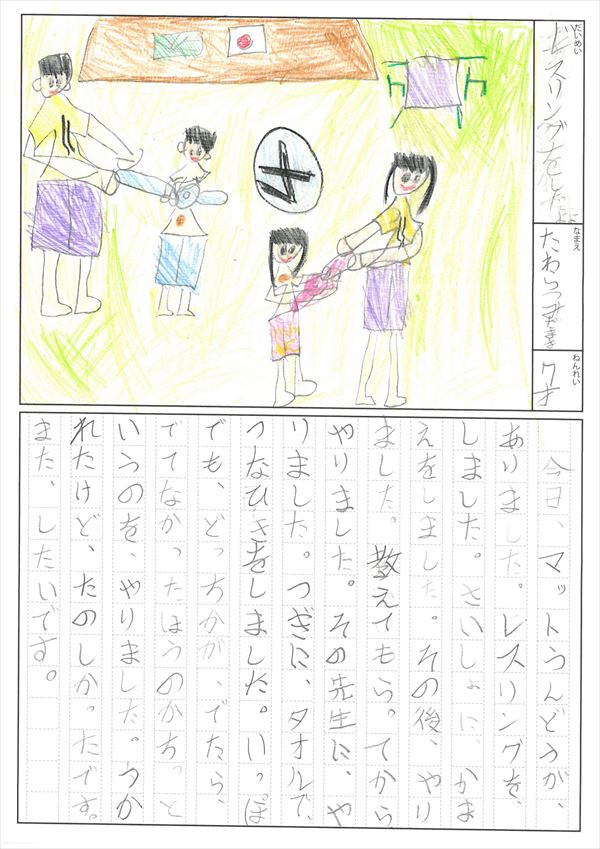 だいめい
レスリングをしたよ
なまえ
ねんれい
7才
今日、マットうんどうが、
ありました。レスリングを、
しました。さいしょに、かま
えをしました。その後、やり
ました。教えてもらってから
やりました。その先生に、や
りました。つぎに、タオルで、
つなひきをしました。いっぽ
でも、どっちかが、でたら、
でてなかったほうのかちっと
いうのを、やりました。つか
れたけど、たのしかったです。
また、したいです。